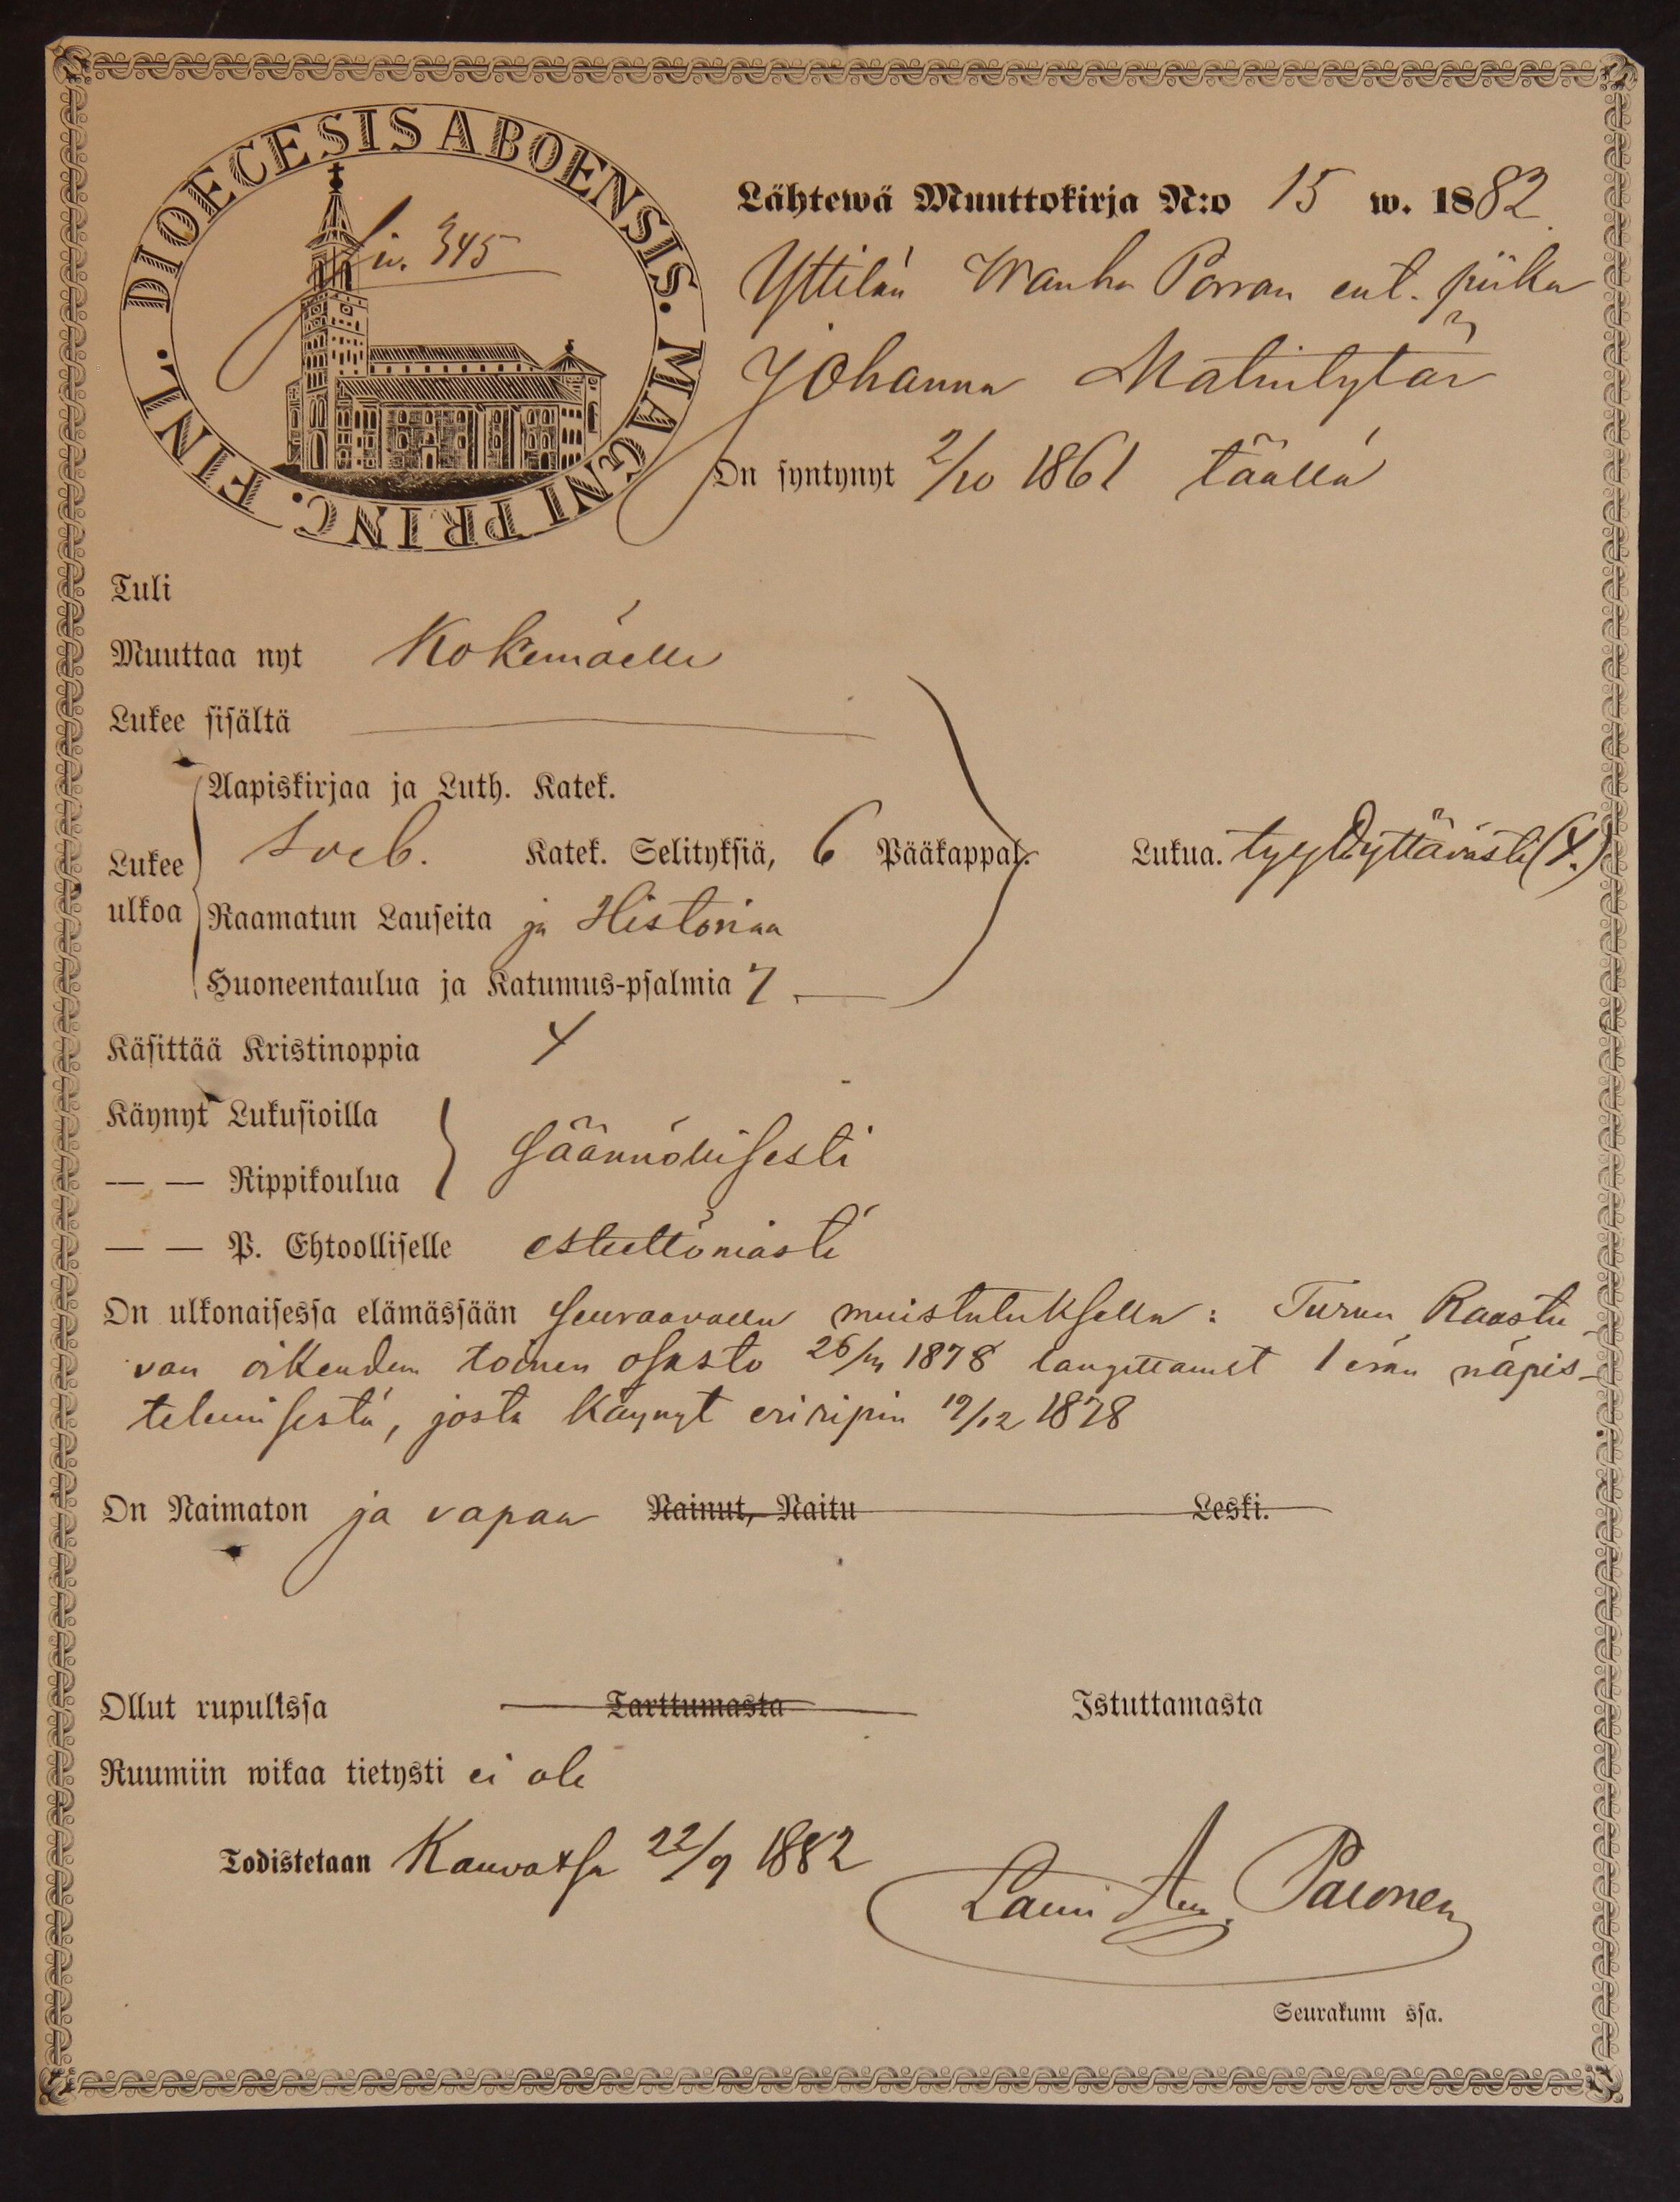 DIOECESIS ABOENSIS. MAGNI PRINC. FINL.
Siv. 345
Lähtewä Muuttokirja N:o 15 w. 1882
Yttilän Wanha Porran ent. piika
Johanna Matintytär
On syntynyt 2/10 1861 täällä
Tuli
Muuttaa nyt Kokemäelle
Lukee sisältä
Aapiskirjaa ja Luth. Katek.
Lukee ulkoa
Sveb. Katek. Selityksiä, 6 Pääkappal. Lukua. tyydyttäväisti (4.)
Raamatun Lauseita ja Historiaa
Huoneentaulua ja Katumus-psalmia 7
Käsittää Kristinoppia 4
Käynyt Lukusioilla
— — Rippikoulua säännöllisesti
— — P. Ehtoolliselle esteettömästi
On ulkonaisessa elämässään seuraavalla muistutuksella: Turun Raastu
van oikeuden toinen osasto 1878 langettamat näpis-
telemisestä, josta käynyt eriripin 19/12 1878
On Naimaton ja vapaa Nainut, Naitu Leski.
Ollut rupulissa Tarttumasta Istuttamasta
Ruumiin wikaa tietysti ei ole
Todistetaan Kauvatsa 22/9 1882
Lauri Paronen
Seurakunn ssa.